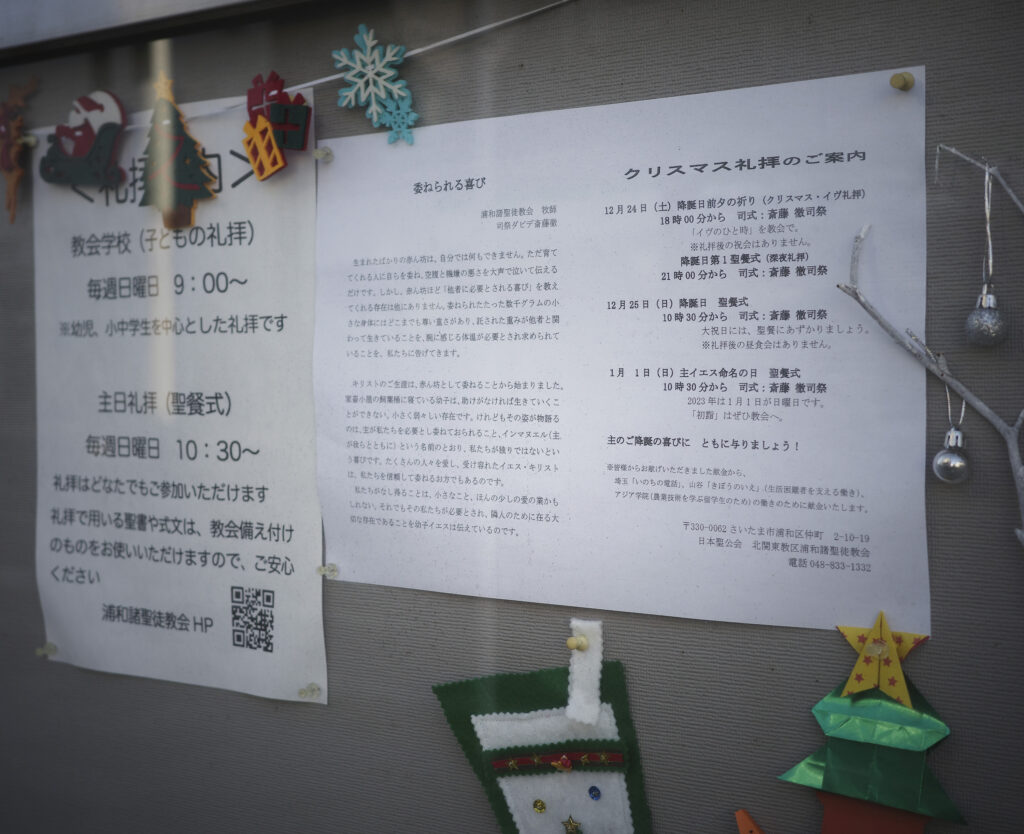 ＜礼拝
内＞
教会学校（子どもの礼拝）
毎週日曜日　9：00～
※幼児、小中学生を中心とした礼拝です
主日礼拝（聖餐式）
毎週日曜日　10：30～
礼拝はどなたでもご参加いただけます
礼拝で用いる聖書や式文は、教会備え付け
のものをお使いいただけますので、ご安心
ください
浦和諸聖徒教会 HP
委ねられる喜び
浦和諸聖徒教会　牧師
司祭ダビデ斎藤徹
生まれたばかりの赤ん坊は、自分では何もできません。ただ育て
てくれる人に自らを委ね、空腹と機嫌の悪さを大声で泣いて伝える
だけです。しかし、赤ん坊ほど「他者に必要とされる喜び」を教え
てくれる存在は他にありません。委ねられたたった数千グラムの小
さな身体にはどこまでも尊い重さがあり、託された重みが他者と関
わって生きていることを、腕に感じる体温が必要とされ求められて
いることを、私たちに告げてきます。
キリストのご生涯は、赤ん坊として委ねることから始まりました。
家畜小屋の飼葉桶に寝ている幼子は、助けがなければ生きていくこ
とができない、小さく弱々しい存在です。けれどもその姿が物語る
のは、主が私たちを必要とし委ねておられること、インマヌエル（主
が我らとともに）という名前のとおり、私たちが独りではないとい
う喜びです。たくさんの人々を愛し、受け容れたイエス・キリスト
は、私たちを信頼して委ねるお方でもあるのです。
私たちがなし得ることは、小さなこと、ほんの少しの愛の業かも
しれない。それでもその私たちが必要とされ、隣人のために在る大
切な存在であることを幼子イエスは伝えているのです。
クリスマス礼拝のご案内
12月24日（土）降誕日前夕の祈り（クリスマス・イヴ礼拝）
18時00分から　司式：斎藤 徹司祭
「イヴのひと時」を教会で。
※礼拝後の祝会はありません。
降誕日第1聖餐式（深夜礼拝）
21時00分から　司式：斎藤 徹司祭
12月25日（日）降誕日　聖餐式
10時30分から　司式：斎藤 徹司祭
大祝日には、聖餐にあずかりましょう。
※礼拝後の昼食会はありません。
1月　1日（日）主イエス命名の日　聖餐式
10時30分から　司式：斎藤 徹司祭
2023年は1月1日が日曜日です。
「初詣」はぜひ教会へ。
主のご降誕の喜びに　ともに与りましょう！
※皆様からお献げいただきました献金から、
埼玉「いのちの電話」、山谷「きぼうのいえ」（生活困難者を支える働き）、
アジア学院（農業技術を学ぶ留学生のため）の働きのために献金いたします。
〒330-0062 さいたま市浦和区仲町　2-10-19
日本聖公会　北関東教区浦和諸聖徒教会
電話 048-833-1332